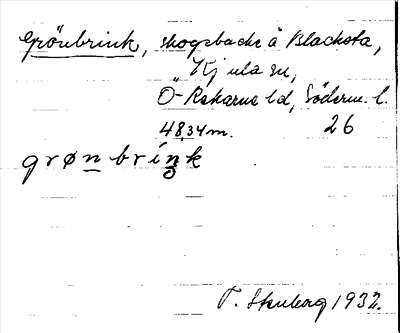 Grönbrink, skogsbacke å Blacksta,
Kjula sn,
Ö-Rekarne hd, Söderm. l.
48,34 m. 26
grønbriŋk
T. Stenberg 1932.